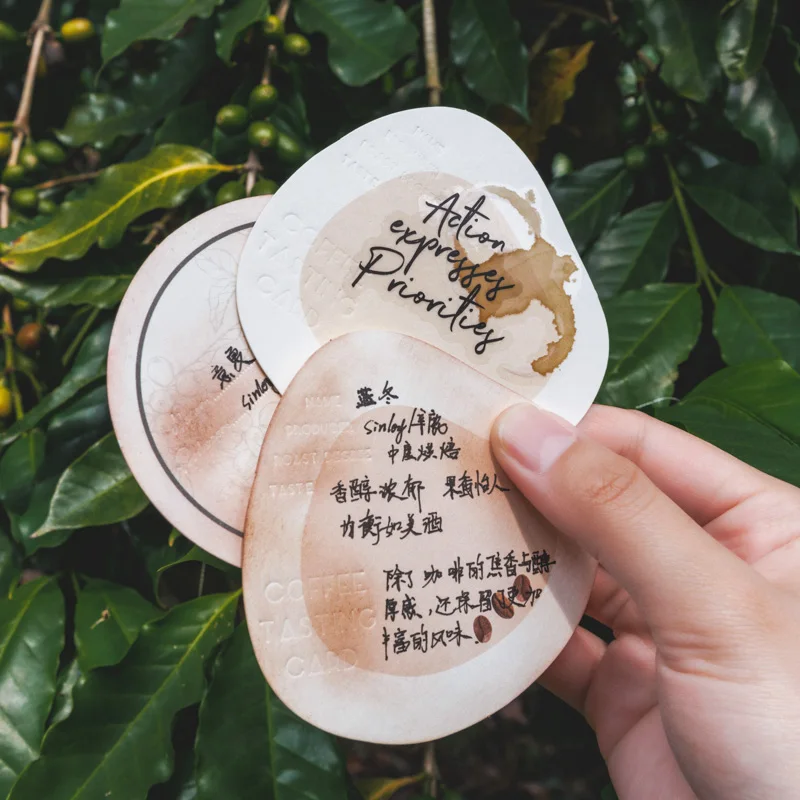 Action
expresses
Priorities
意夏
sinloy
NAME 蓝冬
PRODUCER sinloy/辛鹿
ROAST DEGREE 中度烘焙
TASTE 香醇浓郁 果香怡人
均衡如美酒
COFFEE
TASTING
CARD
除了咖啡的焦香与醇
厚感，还保留了更加
丰富的风味。